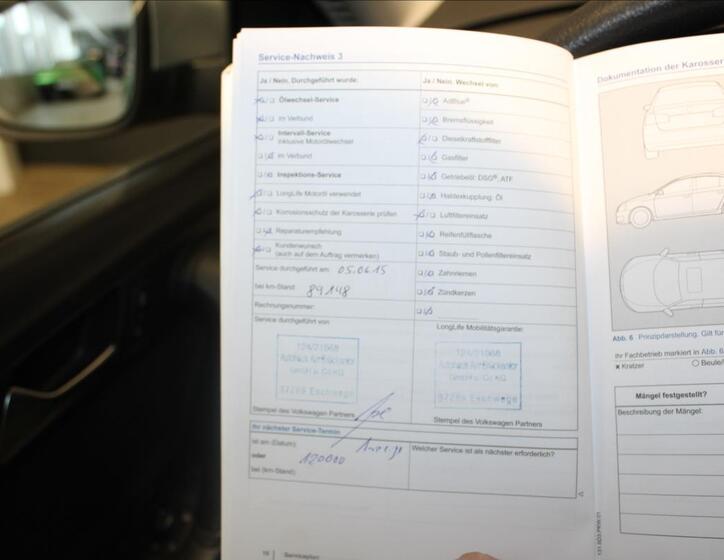 Service-Nachweis 3
Ja / Nein, Durchgeführt wurde:
Ölwechsel-Service
im Verbund
Intervall-Service
inklusive Motorölwechsel
im Verbund
Inspektions-Service
LongLife Motoröl verwendet
Korrosionsschutz der Karosserie prüfen
Reparaturempfehlung
Kundenwunsch
(auch auf dem Auftrag vermerken)
Service durchgeführt am: 05.06.15
bei km-Stand: 89148
Rechnungsnummer:
Service durchgeführt von
37269 Eschwege
Stempel des Volkswagen Partners
Ja / Nein, Wechsel von:
AdBlue®
Bremsflüssigkeit
Dieselkraftstofffilter
Gasfilter
Getriebeöl: DSG®, ATF
Haldexkupplung: Öl
Luftfiltereinsatz
Reifenfüllflasche
Staub- und Pollenfiltereinsatz
Zahnriemen
Zündkerzen
LongLife Mobilitätsgarantie:
37269 Eschwege
Stempel des Volkswagen Partners
Ihr nächster Service-Termin
ist am (Datum):
oder 120000
bei (km-Stand):
Welcher Service ist als nächster erforderlich?
Dokumentation der Karosser
Abb. 6 Prinzipdarstellung. Gilt für
Ihr Fachbetrieb markiert in Abb. 6
x Kratzer
Beule/
Mängel festgestellt?
Beschreibung der Mängel: